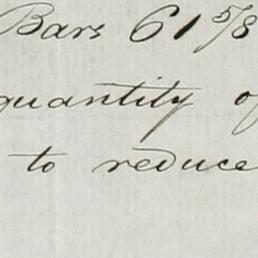 Bars 61 5/8
quantity of
to reduce